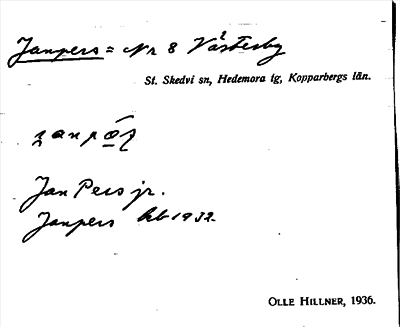 Janpers = Nr 8 Västerby
St. Skedvi sn, Hedemora tg, Kopparbergs län.
Jan Pers jr.
Janpers hb 1932.
OLLE HILLNER, 1936.